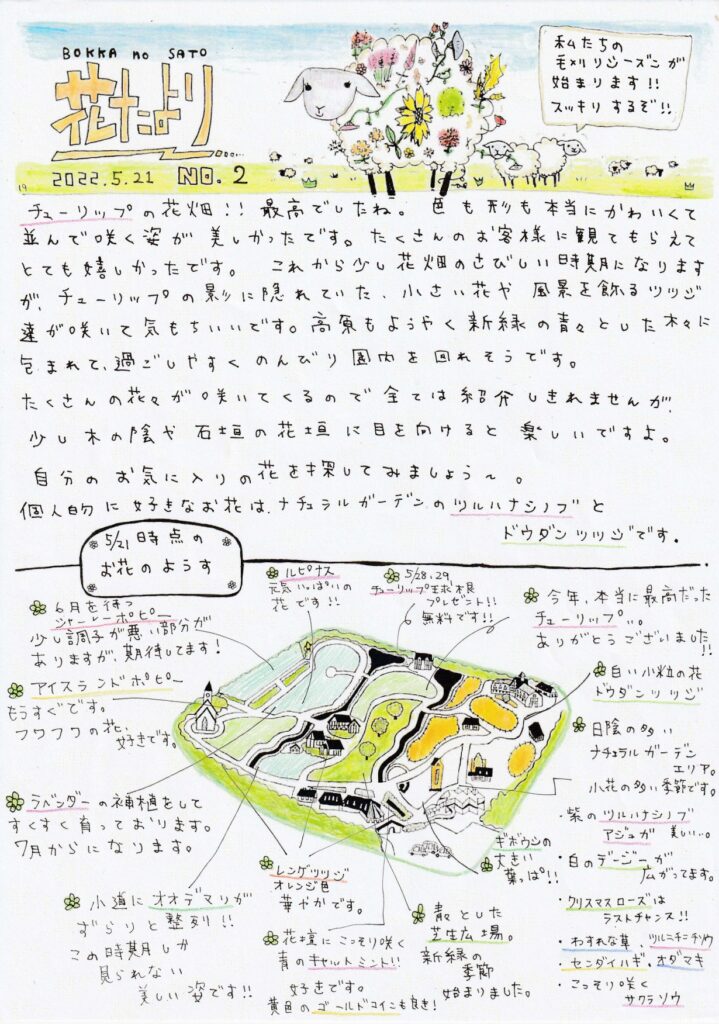 BOKKA no SATO
花たより
2022.5.21 NO.2
私たちの
毛刈りシーズンが
始まります!!
スッキリするぞ!!
チューリップの花畑!! 最高でしたね。 色も形も本当にかわいくて
並んで咲く姿が美しかったです。たくさんのお客様に観てもらえて
とても嬉しかったです。 これから少し花畑のさびしい時期になります
が、チューリップの影に隠れていた、小さい花や 風景を飾るツツジ
達が咲いて気もちいいです。高原もようやく新緑の青々とした木々に
包まれて、過ごしやすくのんびり園内を回れそうです。
たくさんの花々が咲いてくるので全ては紹介しきれませんが、
少し木の陰や石垣の花垣に目を向けると楽しいですよ。
自分のお気に入りの花を探してみましょう〜。
個人的に好きなお花は、ナチュラルガーデンのツルハナシノブと
ドウダンツツジです。
5/21時点の
お花のようす
ルピナス
元気いっぱいの
花です!!
5/28.29
チューリップ球根
プレゼント!!
無料です!!
今年、本当に最高だった
チューリップ…。
ありがとうございました!!
6月を待つ
シャーレーポピー
少し調子が悪い部分が
ありますが、期待してます!
アイスランドポピー
もうすぐです。
フワフワの花、
好きです。
白い小粒の花
ドウダンツツジ
日陰の多い
ナチュラルガーデン
エリア。
小花の多い季節です。
・紫のツルハナシノブ
アジュガ 美しい…。
・白のデージーが
広がってます。
・クリスマスローズは
ラストチャンス!!
・わすれな草、ツルニチニチソウ
・センダイハギ、オダマキ
・こっそり咲く
サクラソウ
ラベンダーの補植をして
すくすく育っております。
7月からになります。
レンゲツツジ
オレンジ色
華やかです。
ギボウシの
大きい
葉っぱ!!
小道にオオデマリが
ずらりと整列!!
この時期しか
見られない
美しい姿です!!
花壇にこっそり咲く
青のキャットミント!!
好きです。
黄色のゴールドコインも良き!
青々とした
芝生広場。
新緑の
季節
始まりました。